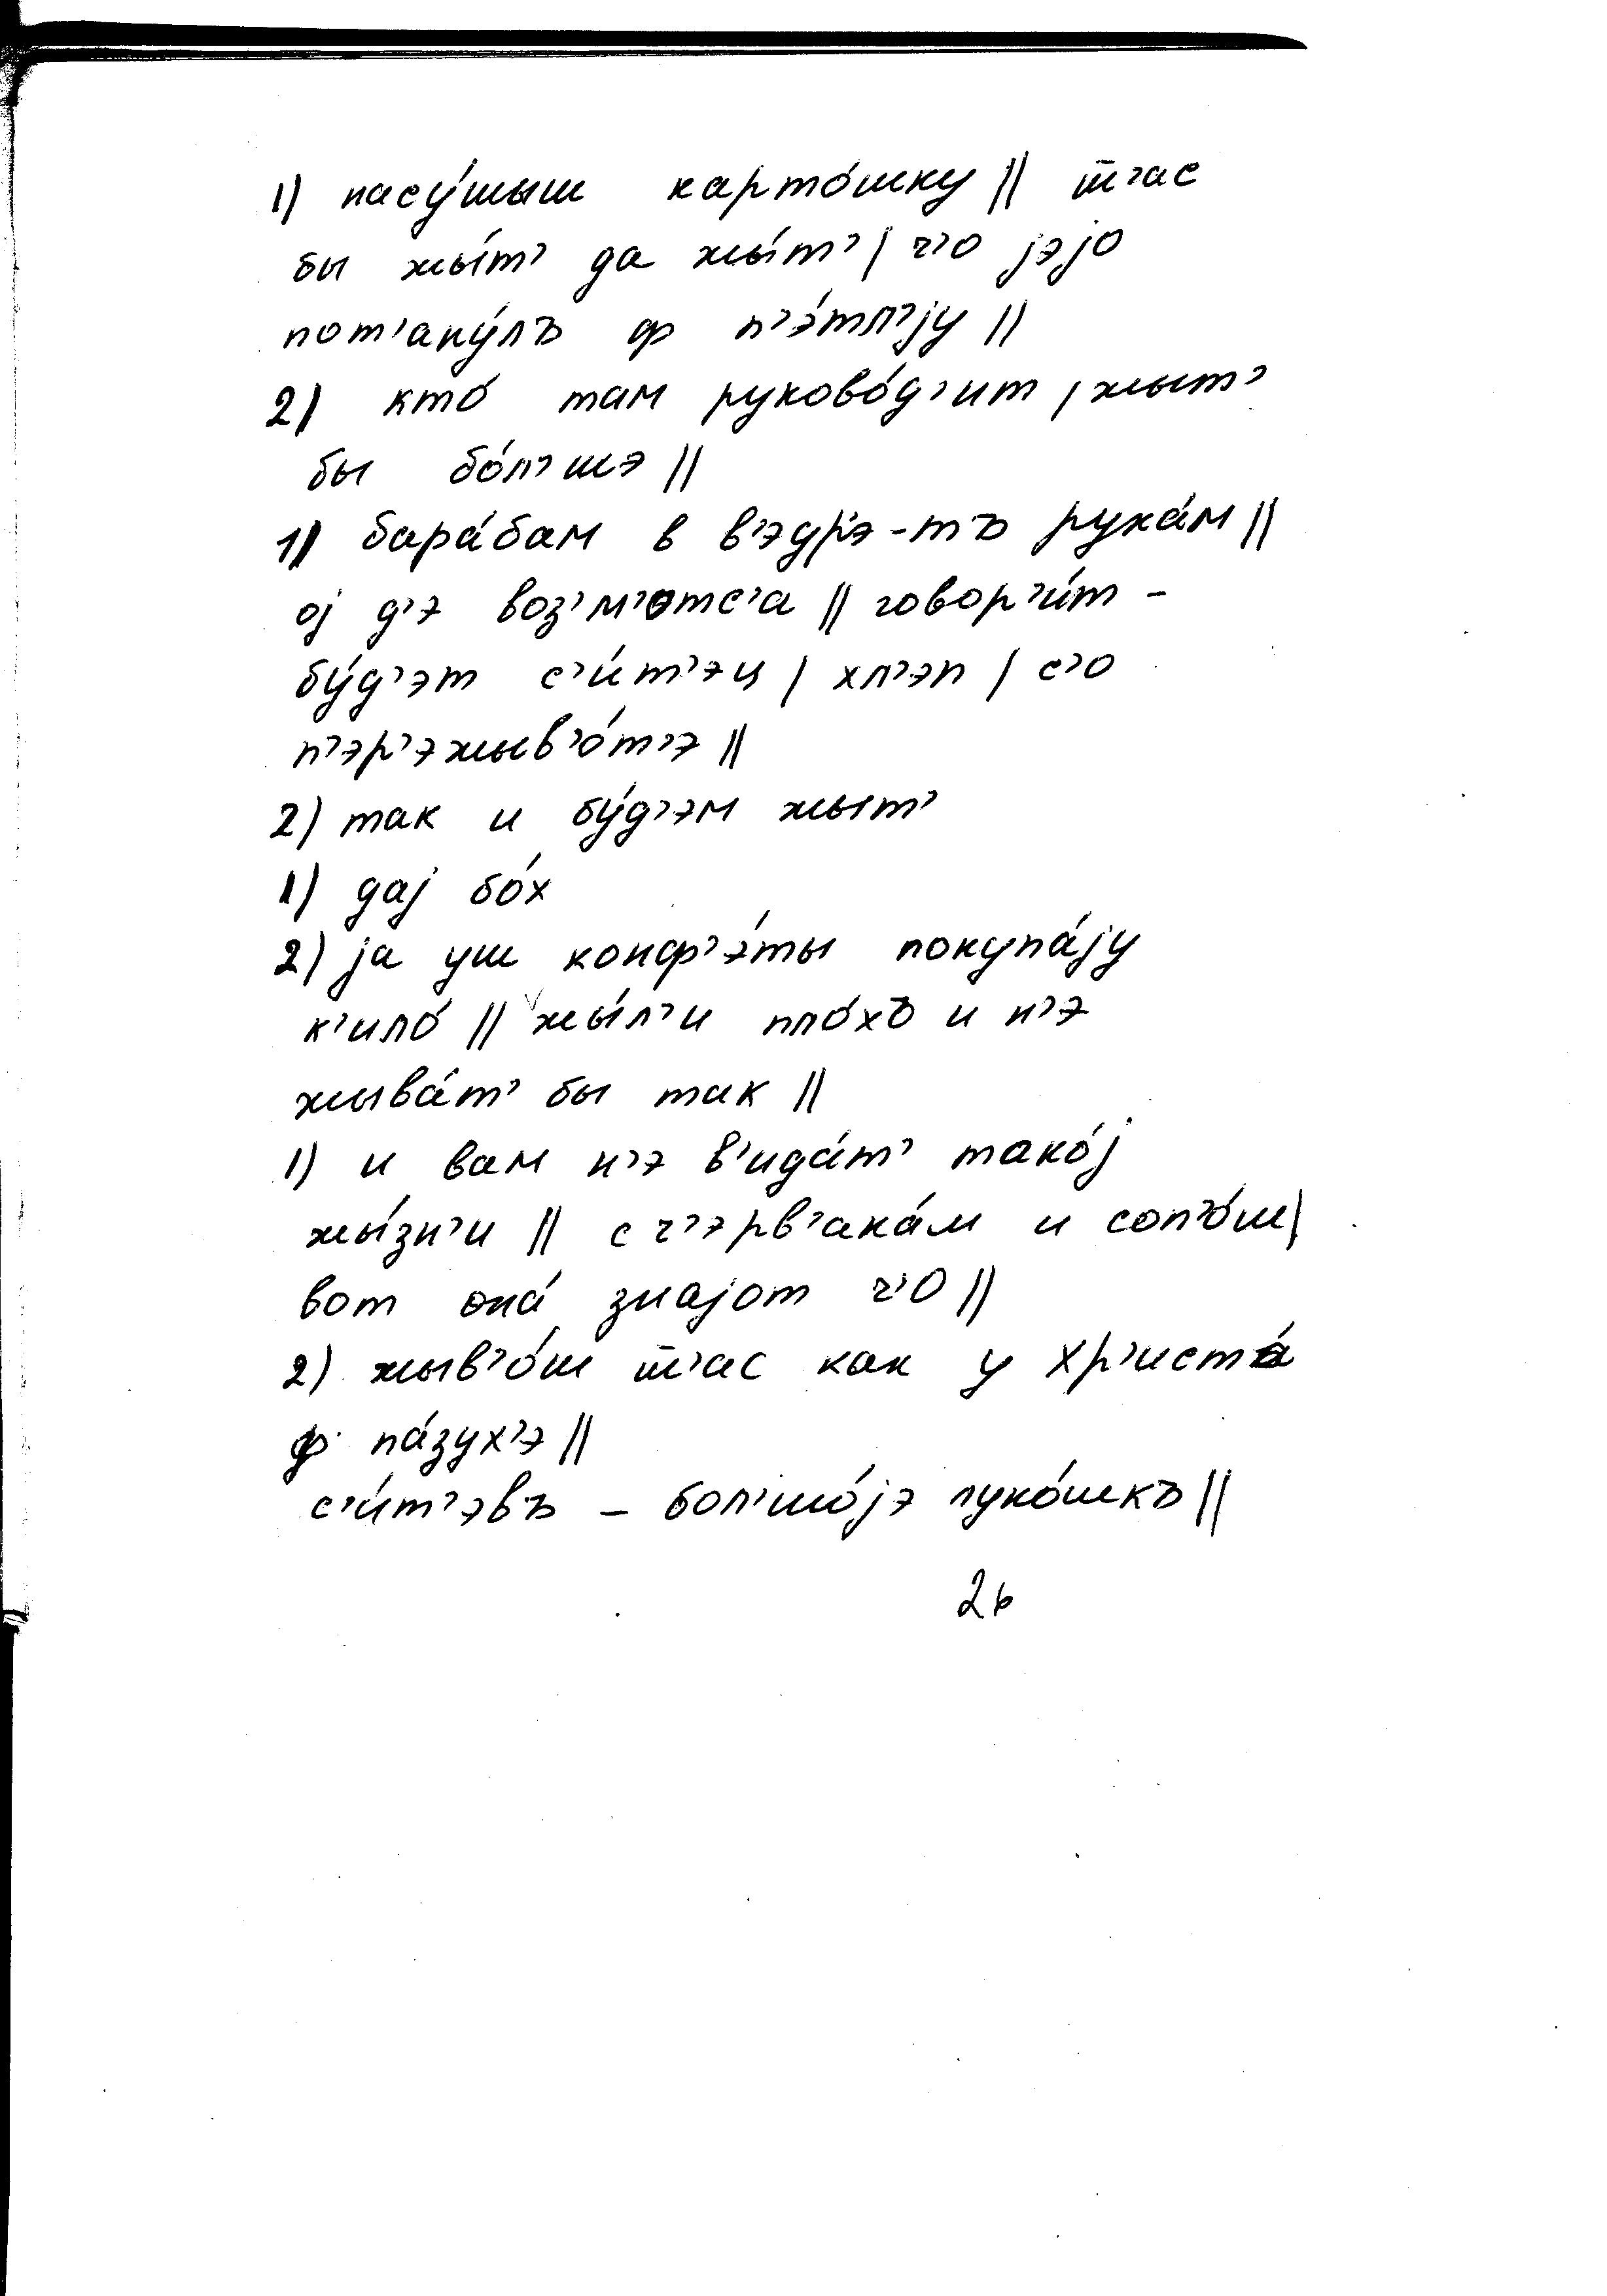 1) насу́шыш карто́шку || т'ас
бы жы́т' да жы́т' | ч'о jэjо
пот'ану́лъ ф п'э́тл'jу ||
2) кто́ там руково́д'ит, жыт'
бы бо́л'шэ ||
1) бара́бам в в'эдр'э-тъ рука́м ||
оj д'э воз'м'отс'а || говор'и́т -
бу́д'эт с'и́т'эц | хл'эп | с'о
п'эр'эжыв'о́т'э ||
2) так и бу́д'эм жыт'
1) даj бо́х
2) jа уш конф'э́ты покупа́jу
к'ило́ || жы́л'и пло́хъ и н'э
жыва́т' бы так ||
1) и вам н'э в'ида́т' тако́j
жы́зн'и || с ч'эрв'ака́м и сол'о́ш|
вот она́ знаjот ч'о ||
2) жыв'о́ш т'ас как у хр'иста́
ф па́зух'э ||
с'и́т'эвъ - бол'шо́jэ луко́шкъ ||
26